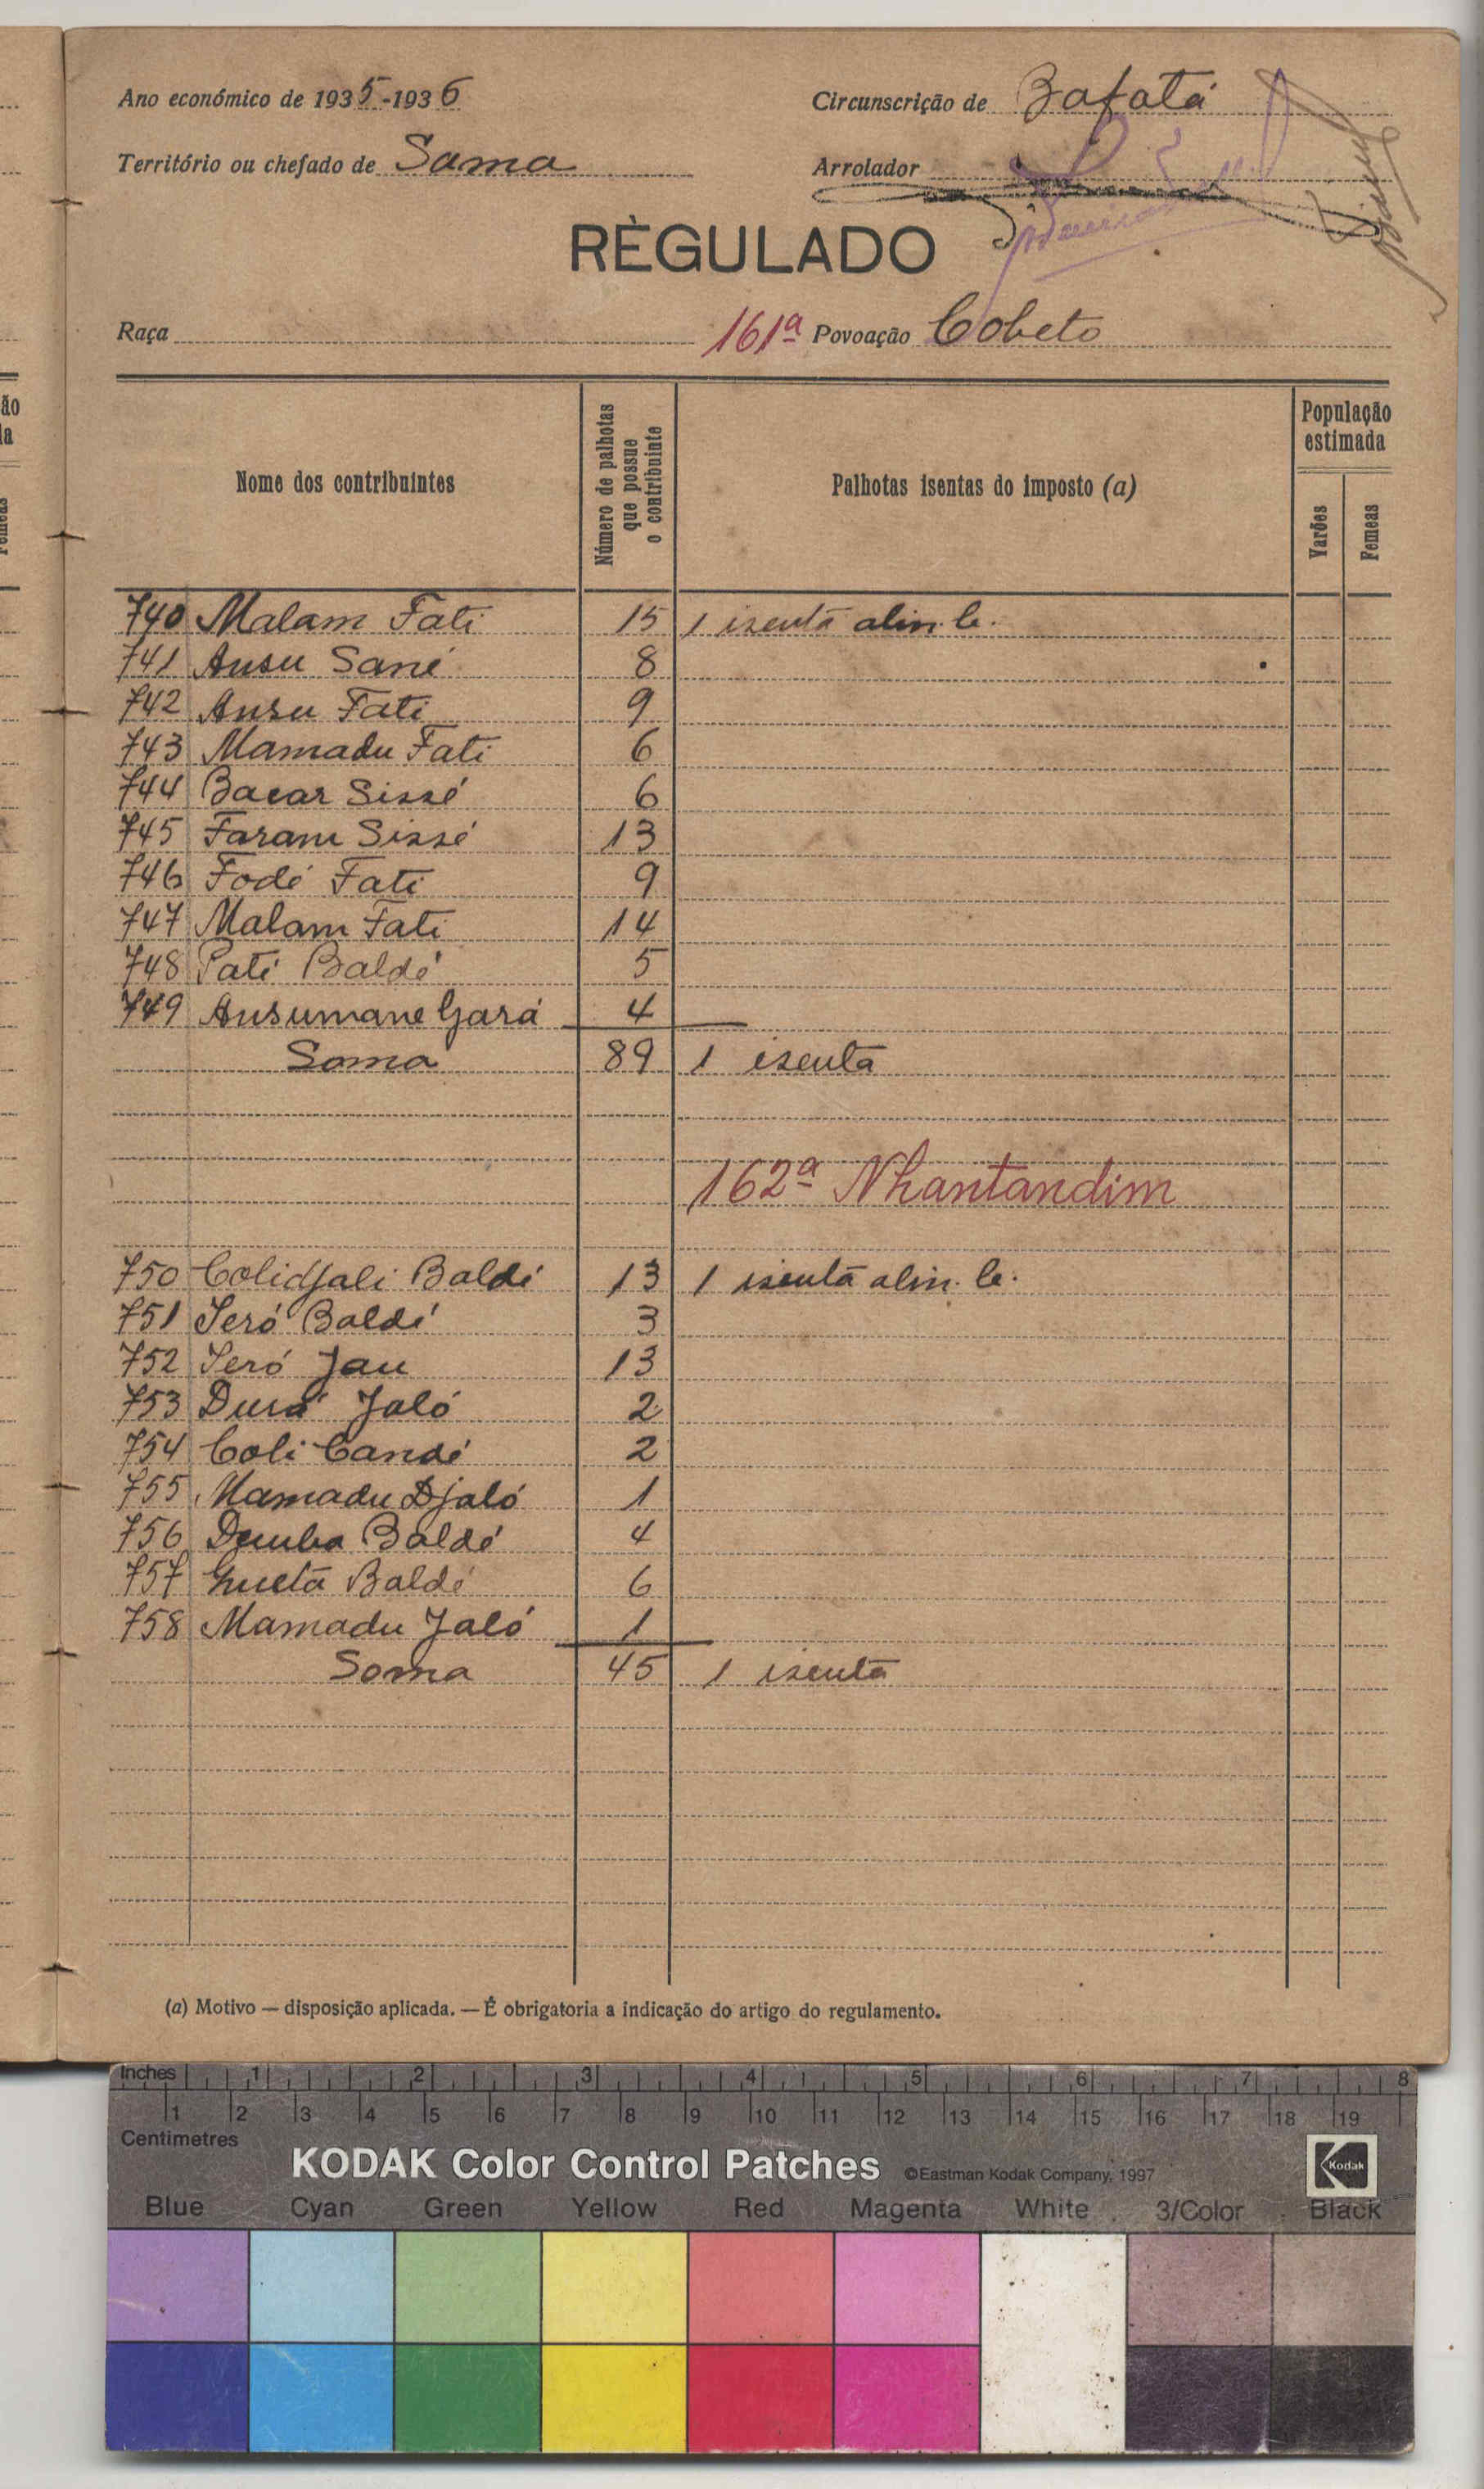 Ano económico de 1935-1936
Circunscrição de Bafatá
Território ou chefado de Sama
Arrolador
RÈGULADO
Raça
161ª Povoação Cobeto
Nome dos contribuintes
Número de palhotas
que possue
o contribuinte
Palhotas isentas do imposto (a)
População
estimada
Varões
Femeas
740 Malam Fati 15 1 isenta alin. b.
741 Ansu Sané 8
742 Ansu Fati 9
743 Mamadu Fati 6
744 Bacar Sissé 6
745 Faram Sissé 13
746 Fodé Fati 9
747 Malam Fati 14
748 Pati Baldé 5
749 Ansumane Gará 4
Soma 89 1 isenta
162ª Nhantandim
750 Colidjali Baldé 13 1 isenta alin. b.
751 Seró Baldé 3
752 Seró Jau 13
753 Durá Jaló 2
754 Coli Candé 2
755 Mamadu Djaló 1
756 Demba Baldé 4
757 Guetā Baldé 6
758 Mamadu Jaló 1
Soma 45 1 isenta
(a) Motivo — disposição aplicada. — É obrigatoria a indicação do artigo do regulamento.
Inches 1 2 3 4 5 6 7 8
1 2 3 4 5 6 7 8 9 10 11 12 13 14 15 16 17 18 19
Centimetres
KODAK Color Control Patches ©Eastman Kodak Company, 1997 Kodak
Blue Cyan Green Yellow Red Magenta White 3/Color Black